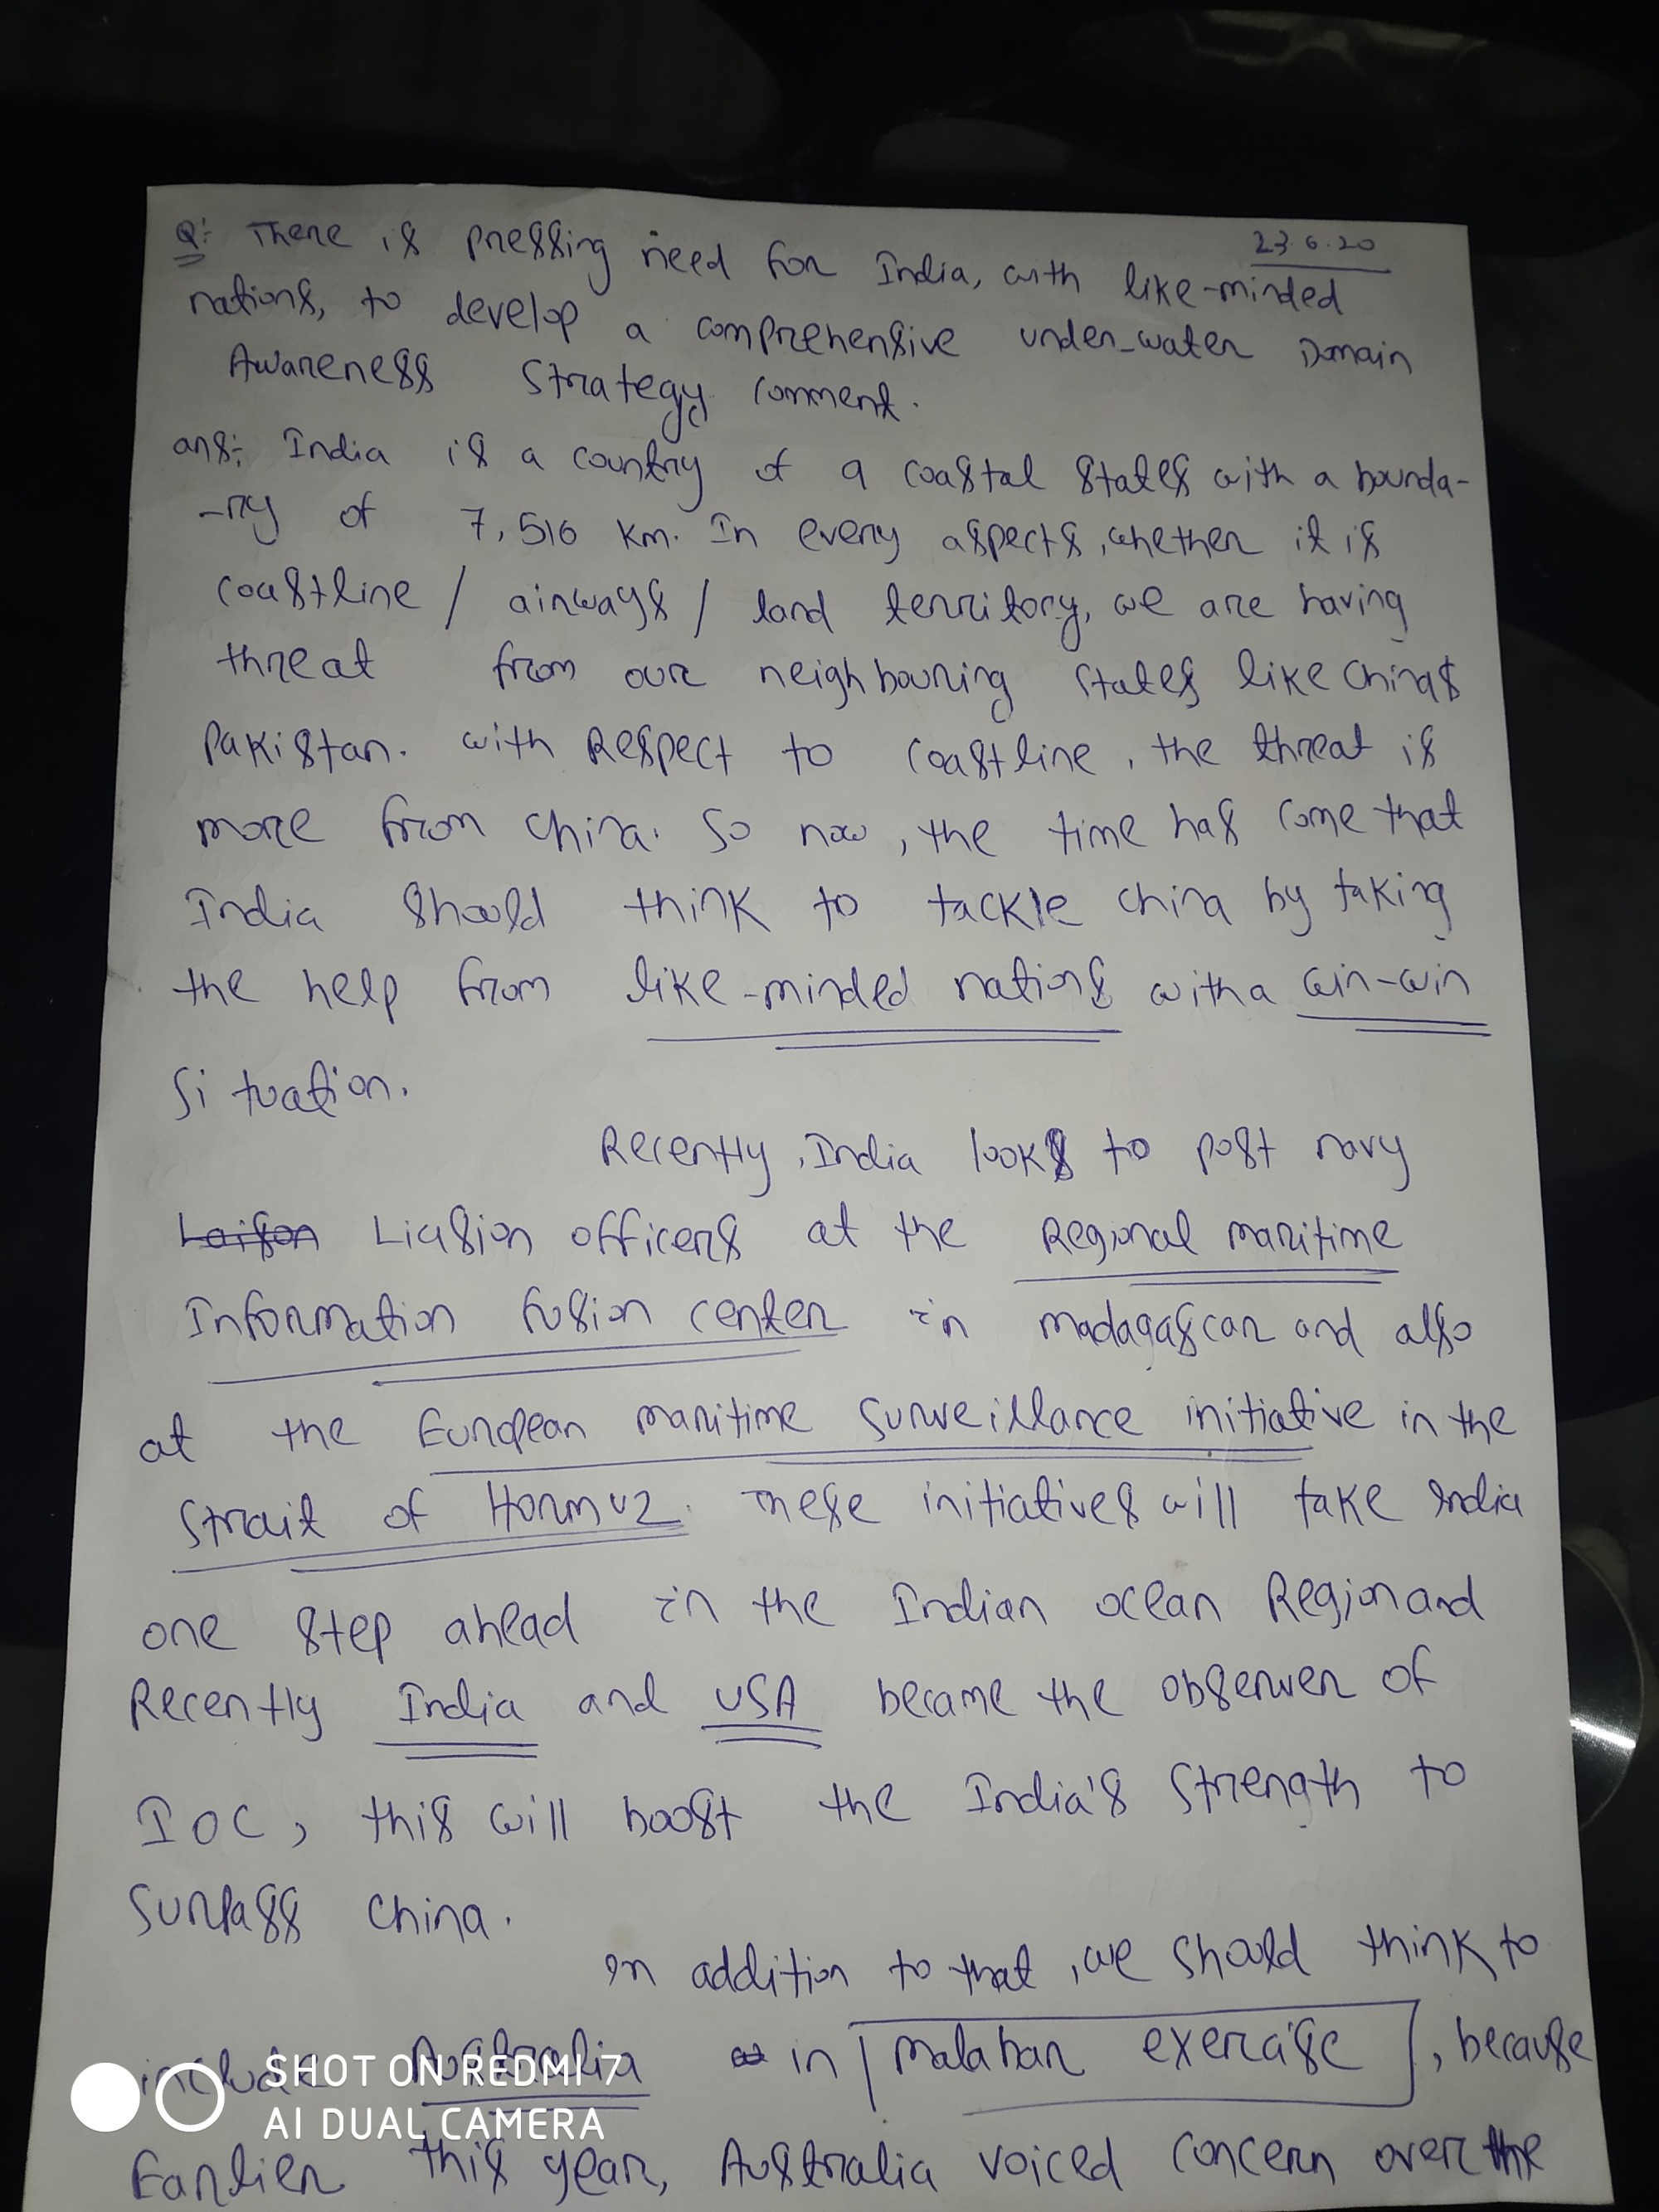 23.6.20
Q:- There is pressing need for India, with like-minded
nations, to develop a comprehensive under-water Domain
Awareness Strategy comment.
ans:- India is a country of a coastal states with a bounda-
-ry of 7,516 km. In every aspects, whether it is
coastline / airways / land territory, we are having
threat from our neighbouring states like China &
Pakistan. with Respect to coastline, the threat is
more from China. So now, the time has come that
India should think to tackle china by taking
the help from like-minded nations with a win-win
situation.
Recently, India looks to post navy
Liasion officers at the Regional maritime
Information fusion center in madagascar and also
at the European maritime surveillance initiative in the
Strait of Hormuz. These initiatives will take India
one step ahead in the Indian ocean Region and
Recently India and USA became the observer of
IOC, this will boost the India's strength to
surpass China.
In addition to that, we should think to
include Australia in malabar exercise, because
Earlier this year, Australia voiced concern over the
SHOT ON REDMI 7
AI DUAL CAMERA